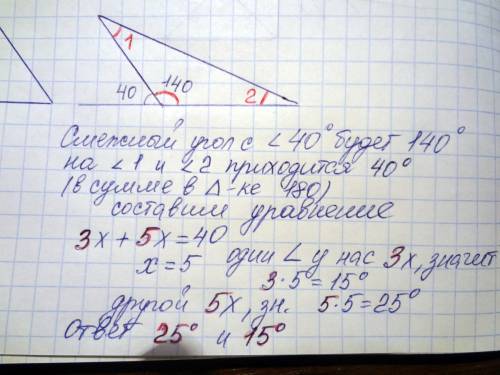 1
40 140 2
Смежный угол с ∠40° будет 140°
на ∠1 и ∠2 приходится 40°
(в сумме в Δ-ке 180)
составим уравнение
3x + 5x = 40
x = 5 один ∠ у нас 3x, значит
3·5 = 15°
другой 5x, зн. 5·5 = 25°
Ответ 25° и 15°